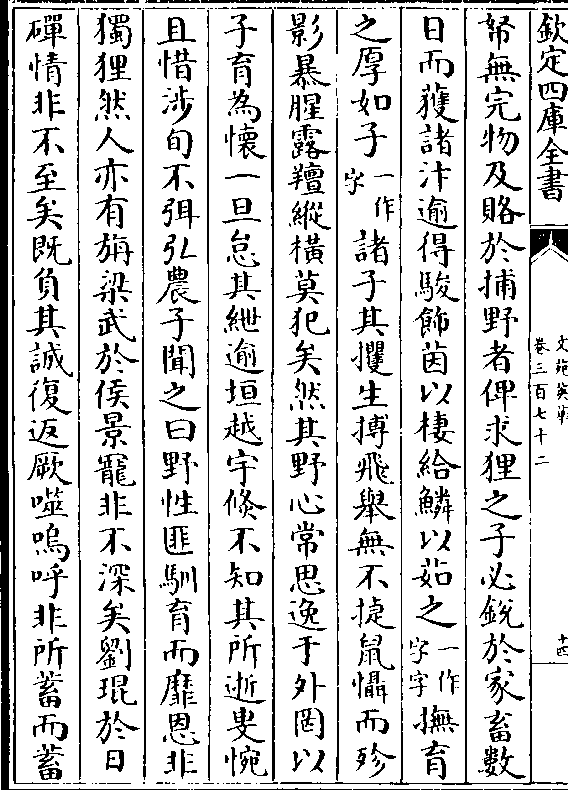 欽定四庫全書
文苑英華
卷三百七十二
十四
帑無完物及賂於捕野者俾求狸之子必銳於家畜數
日而獲諸汴逾得駿飾茵以棲給鱗以茹之一作字字撫育
之厚如子一作字諸子其攫生搏飛舉無不㨗鼠懾而殄
影暴腥露羶縱橫莫犯矣然其野心常思逸于外罔以
子育為懷一旦怠其紲逾垣越宇倐不知其所逝叟惋
且惜涉旬不弭𢎞農子聞之曰野性匪馴育而靡恩非
獨狸然人亦有旃梁武於侯景寵非不深矣劉琨於日
磾情非不至矣既負其誠復返厥噬嗚呼非所蓄而蓄